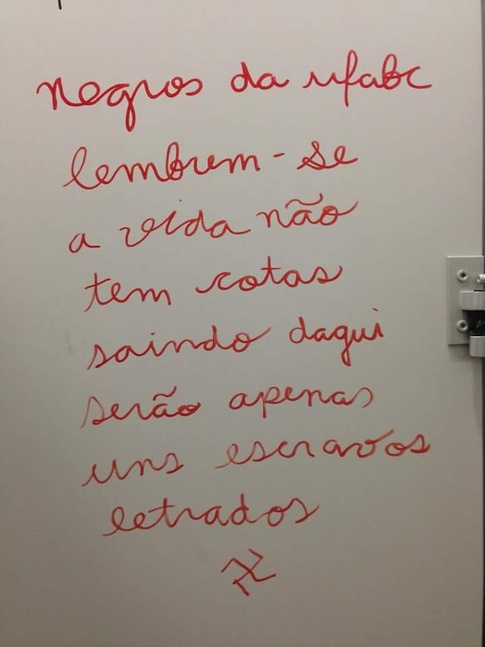 negros da ufabc
lembrem-se
a vida não
tem cotas
saindo daqui
serão apenas
uns escravos
letrados